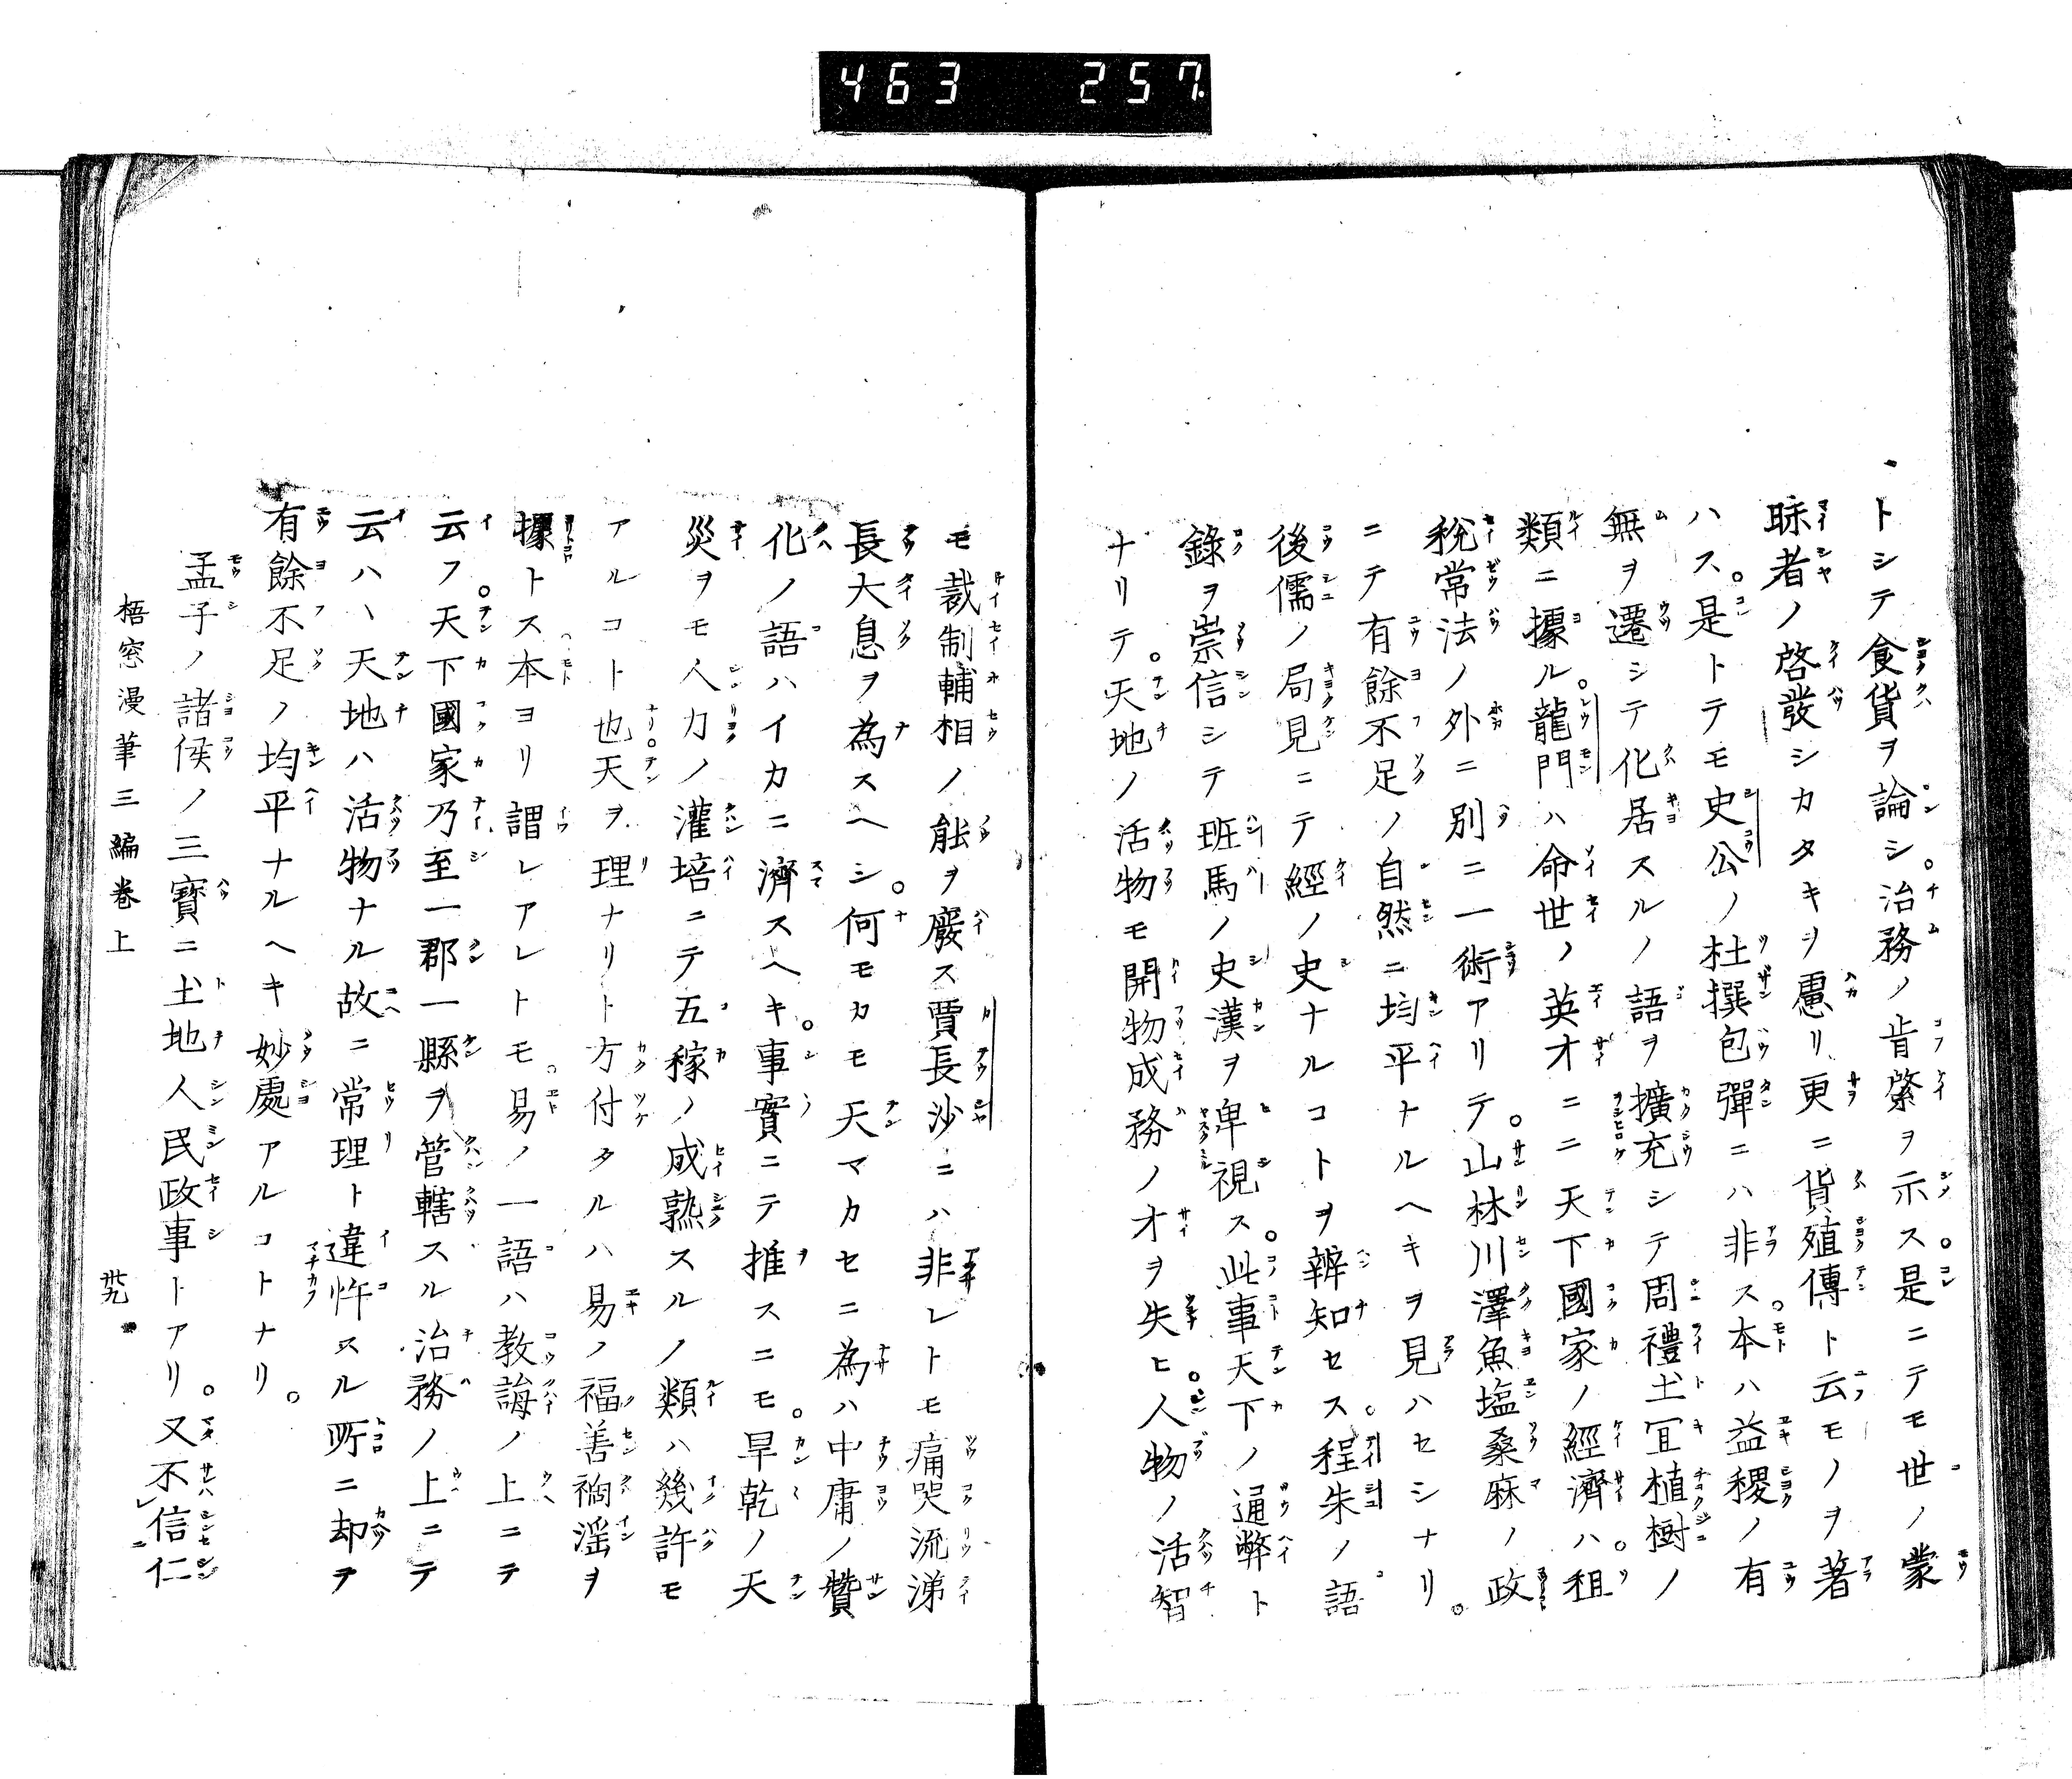 463 257
トシテ食貨ヲ論シ。治務ノ肯綮ヲ示ス。是ニテモ世ノ蒙
眛者ノ啓發シカタキヲ慮リ更ニ貨殖傳ト云モノヲ著
ハス。是トテモ史公ノ杜撰包彈ニハ非ス。本ハ益稷ノ有
無ヲ遷シテ化居スルノ語ヲ擴充シテ周禮土宜植樹ノ
類ニ據ル。龍門ハ命世ノ英才ニ二天下國家ノ經濟ハ。租
稅常法ノ外ニ別ニ一術アリテ。山林川澤魚塩桑麻ノ政
ニテ有餘不足ノ自然ニ均平ナルヘキヲ見ハセシナリ。
後儒ノ局見ニテ經ノ史ナルコトヲ辨知セス。程朱ノ語
錄ヲ崇信シテ班馬ノ史漢ヲ卑視ス。此事天下ノ通弊ト
ナリテ。天地ノ活物モ開物成務ノ才ヲ失ヒ。人物ノ活智
モ裁制輔相ノ能ヲ廢ス賈長沙ニハ非レトモ痛哭流涕
長大息ヲ為スヘシ。何モカモ天マカセニ為ハ中庸ノ贊
化ノ語ハイカニ濟スヘキ。事實ニテ推スニモ。旱乾ノ天
災ヲモ人力ノ灌培ニテ五稼ノ成熟スルノ類ハ幾許モ
アルコト也。天ヲ理ナリト方付タルハ易ノ福善禍淫ヲ
據トス本ヨリ謂レアレトモ。易ノ一語ハ教誨ノ上ニテ
云フ。天下國家乃至一郡一縣ヲ管轄スル治務ノ上ニテ
云ハヽ天地ハ活物ナル故ニ常理ト違忤スル所ニ却テ
有餘不足ノ均平ナルヘキ妙處アルコトナリ。
孟子ノ諸侯ノ三寶ニ土地人民政事トアリ。又不信仁
梧窓漫筆三編卷上 廿九